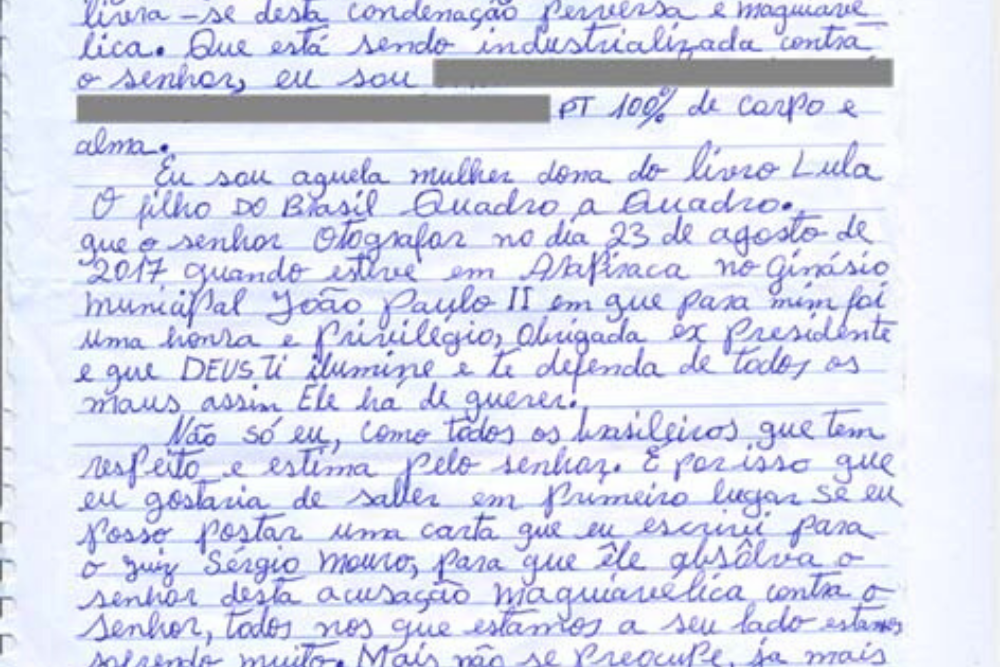 livra-se desta condenação perversa e maquiavé
lica. Que está sendo industrializada contra
o senhor, eu sou
PT 100% de corpo e
alma.
Eu sou aquela mulher dona do livro Lula
O filho DO BRASIL Quadro a Quadro.
que o senhor Otografar no dia 23 de agosto de
2017 quando esteve em Arapiraca no Ginásio
Municipal João Paulo II em que para mim foi
uma honra e Privilégio, Obrigada ex Presidente
e que DEUS Ti ilumine e te defenda de todos os
maus assin Ele há de querer.
Não só eu, como todos os brasileiros que tem
respeito e estima pelo senhor. E por isso que
eu gostaria de saber em Primeiro lugar se eu
Posso Postar uma carta que eu escrivi para
o juiz Sérgio Mouro, para que êle absôlva o
senhor desta acusação maquiavélica contra o
senhor, todos nos que estamos a seu lado estamos
sofrendo muito. Mais não se Preocupe, ja mais